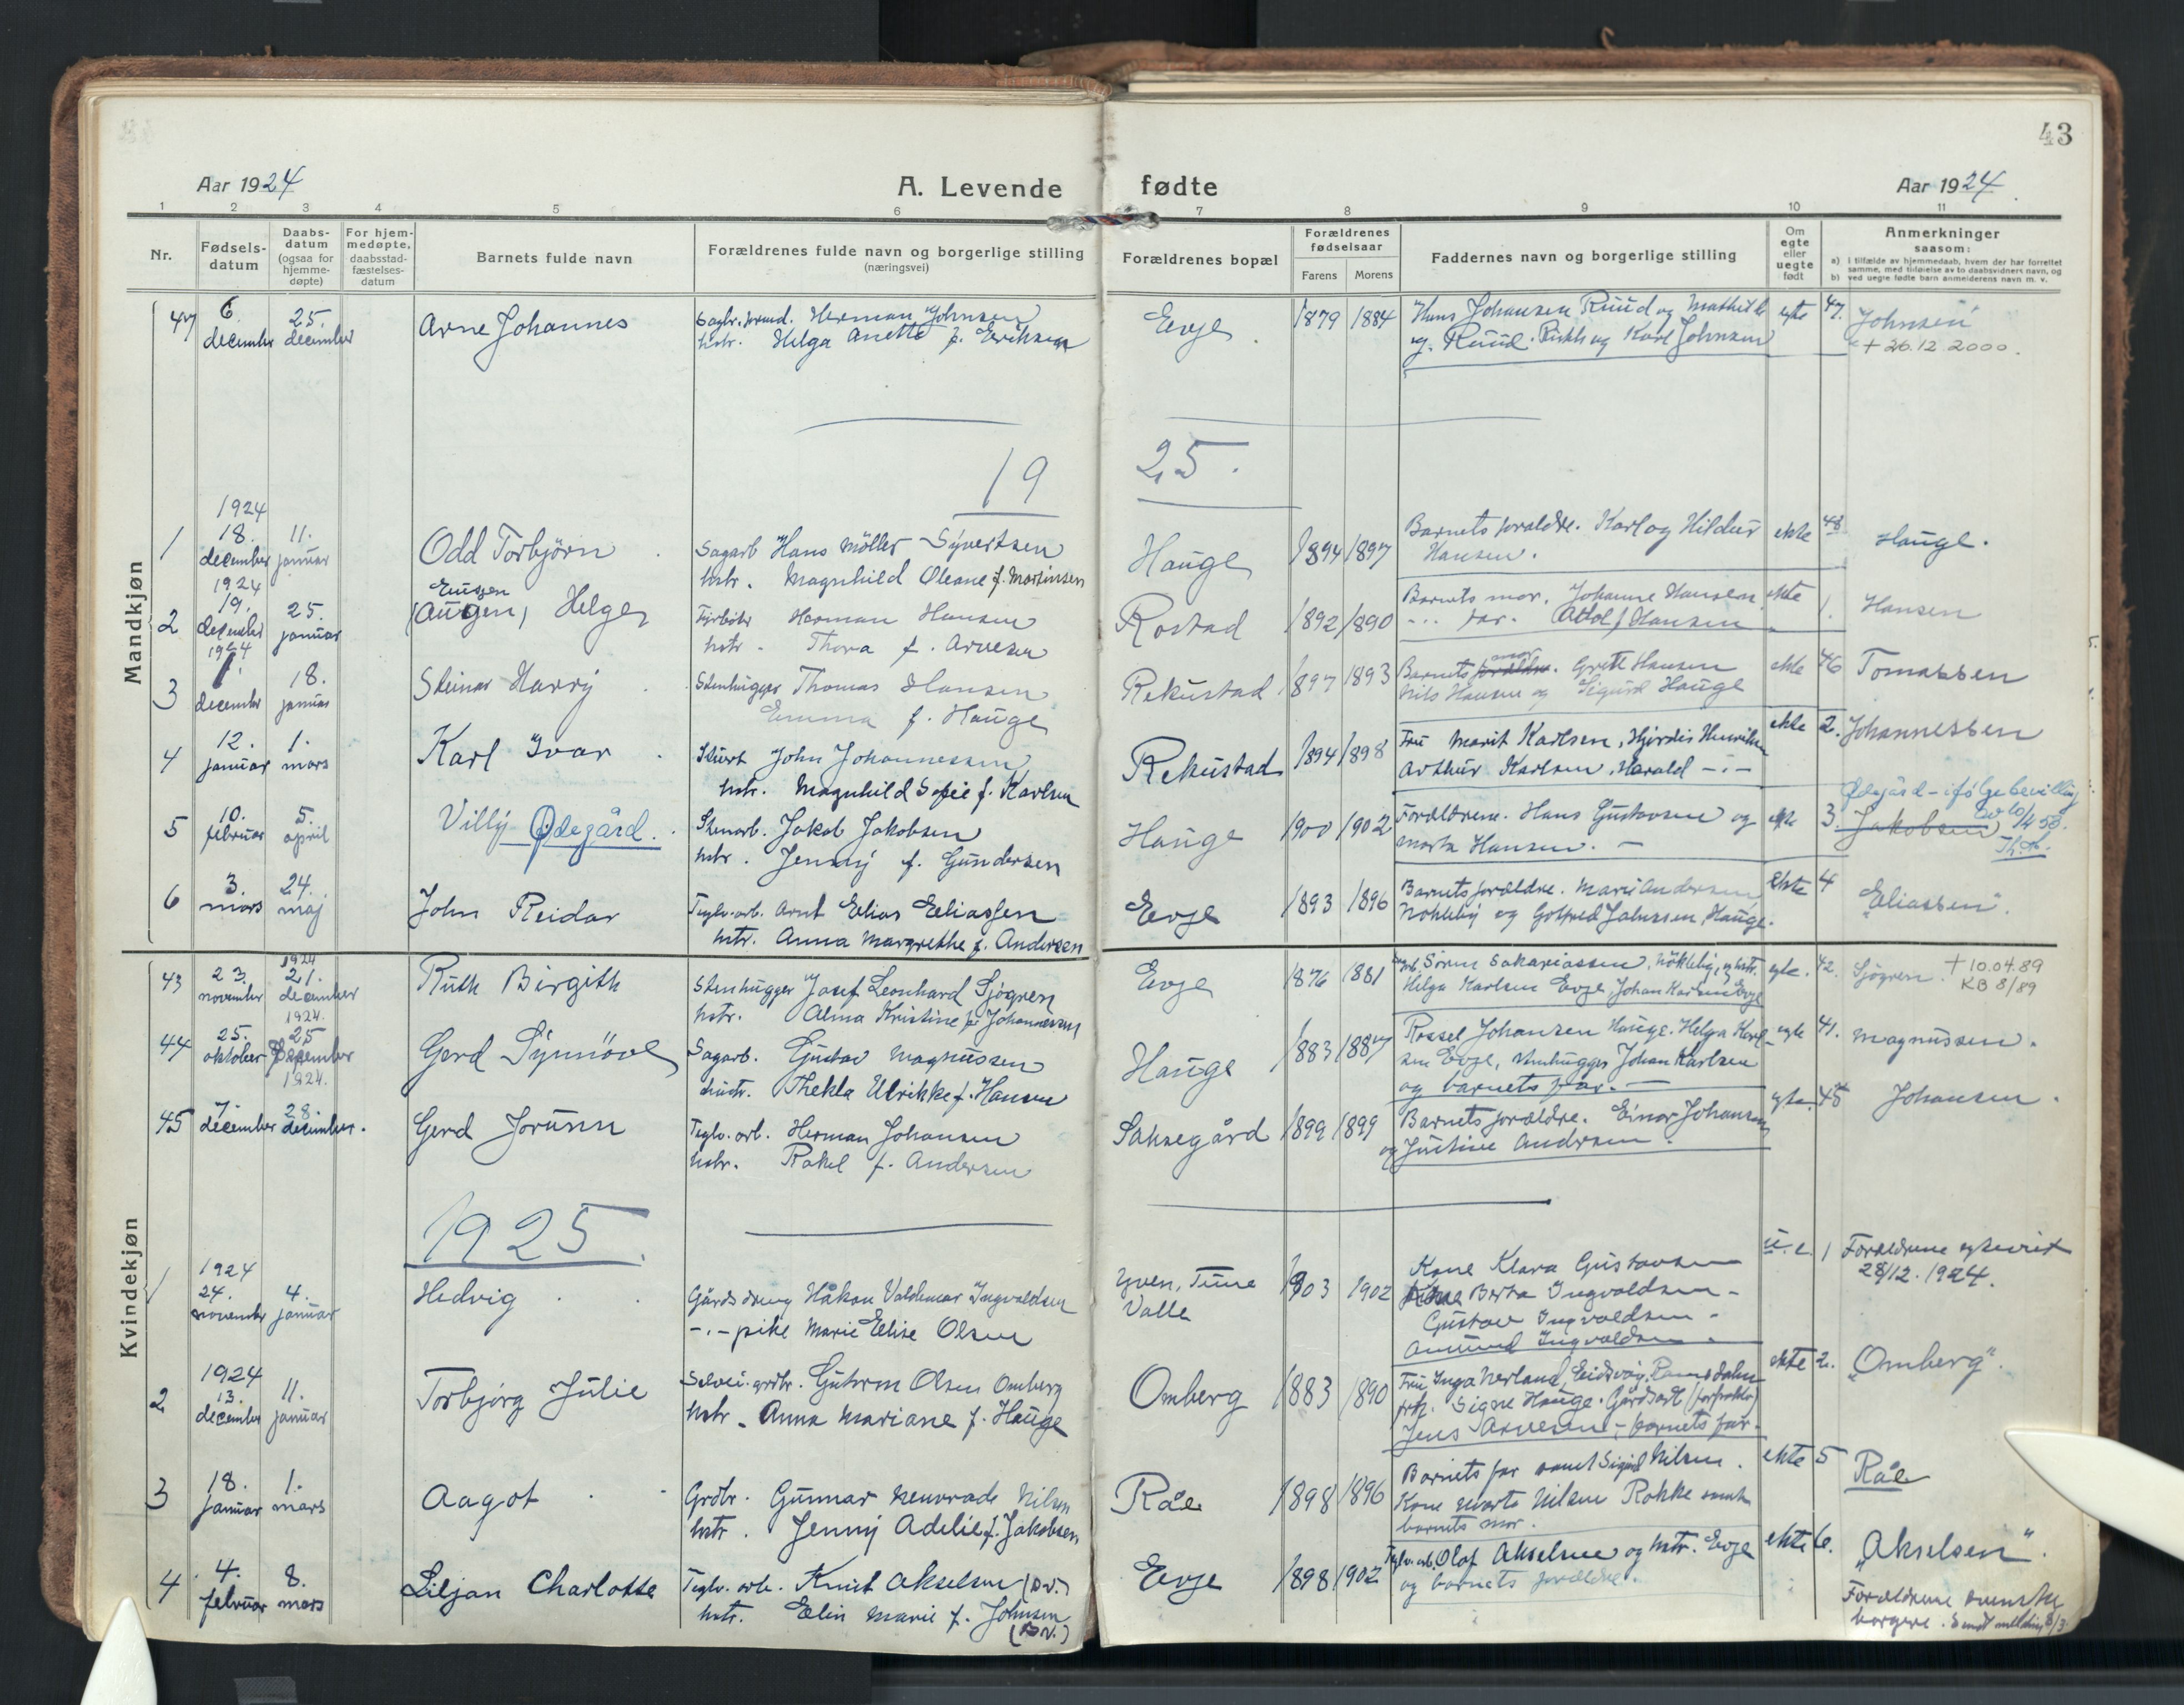 43
Aar 1924
A. Levende fødte
Aar 1924.
1 2 3 4 5 6 7 8 9 10 11
Nr.
Fødsels-
datum
Daabs-
datum
(ogsaa for
hjemme-
døpte)
For hjem-
medøpte,
daabsstad-
fæstelses-
datum
Barnets fulde navn
Forældrenes fulde navn og borgerlige stilling
(næringsvei)
Forældrenes bopæl
Forældrenes
fødselsaar
Farens Morens
Faddernes navn og borgerlige stilling
Om
egte
eller
uegte
født
Anmerkninger
saasom:
a) i tilfælde av hjemmedaab, hvem der har forrettet
samme, med tilføielse av to daabsvidners navn, og
b) ved uegte fødte barn anmelderens navn m. v.
Mandkjøn
47 6. december 25. december Arne Johannes
Herman Johnsen
hstr. Helga Anette f. Eriksen
Evje 1879 1884
Hans Johansen Ruud og Mathilde
Ruud. Karl Johnsen
egte 47. Johnsen
+ 26.12 2000.
1925.
1924
1 18. december 11. januar Odd Torbjörn
Sagarb Hans Möller Syvertsen
hstr. Magnhild Oleane f. Martinsen
Hauge 1894 1897
Barnets forældre. Karl og Hildur
Hansen.
ekte 48 Hauge.
1924
2 19. december 25. januar Eugen
(Augen) Helge
Fyrbøter Herman Hansen
hstr. Thora f. Arvesen
Rostad 1892 1890
Barnets mor. Johanne Hansen
-"- far. Adolf Hansen
ekte 1. Hansen
1924
3 1. december 18. januar Steinar Harry
Stenhugger Thomas Hansen
Emma f. Hauge
Rekustad 1897 1893
Barnets forældre mor. Grete Hansen
Nils Hansen og Sigurd Hauge
ekte 46 Tomassen
4 12. januar 1. mars Karl Ivar
Stuert John Johannessen
hstr. Magnhild Sofie f. Karlsen
Rekustad 1894 1898
Fru Marit Karlsen, Hjördis Henriksen
Arthur Karlsen, Harald -"-
ekte 2. Johannessen
5 10. februar 5. april Villy Ødegård.
Stenarb. Jakob Jakobsen
hstr. Jenny f. Gundersen
Hauge 1900 1902
Forældrene. Hans Gustavsen og
Marta Hansen. -
ekte 3. Jakobsen
Ødegård - ifölge bevilling
av 10/4 58.
6 3. mars 24. maj John Reidar
Teglv.arb. Arnt Elias Eliassen
hstr. Anna Margrethe f. Andersen
Evje 1893 1896
Barnets forældre. Marie Andersen
Nökleby og Gotfred Johnsen, Hauge.
Ekte 4 "Eliassen".
Kvindekjøn
43 23. november 1924 21. december Ruth Birgith
Stenhugger Josef Leonhard Sjögren
hstr. Alma Kristine f. Johannessen
Evje 1876 1881
Sören Sakariassen, Nökleby, og hstr.
Helga Karlsen Evje, Johan Karlsen Evje
egte. 42. Sjögren. + 10.04.89
KB 8/89
1924.
44 25. oktober 25 december Gerd Synnöve
Sagarb. Gustav Magnussen
hustr. Thekla Ulrikke f. Hansen
Hauge 1883 1887
Rossel Johansen Hauge. Helga Karl-
sen Evje, Stenhugger Johan Karlsen
og barnets far. -
egte 41. Magnussen.
1924.
45 7. december 28. december. Gerd Jorunn
Teglv. arb. Herman Johansen
hstr. Rakel f. Andersen
Saksegård 1899 1899
Barnets forældre. Einar Johansen
og Justine Andersen.
egte. 45 Johansen.
1925.
1924
1 24. november 4. januar Hedvig
Gårdsdreng Håkon Valdemar Ingvaldsen
-"- pike Marie Elise Olsen
Yven, Tune
Valle
1903 1902
Kone Klara Gustavsen
Kone Berta Ingvaldsen -
Gustav Ingvaldsen -
Amund Ingvaldsen -
u.e. 1 Forældrene egteviet
28/12. 1924.
1924
2 13. december 11. januar Torbjörg Julie
Selvei. grdbr. Guttorm Olsen Omberg
hstr. Anna Mariane f. Hauge
Omberg 1883 1890
Fru Inga Nerland, Eidsvåg, Romsdalen
frk. Signe Hauge. Gårdsarb (forpakter)
Jens Arvesen - barnets far.
ekte 2. "Omberg".
3 18. januar 1. mars Aagot
Grdbr. Gunnar Nilsen
hstr. Jenny Adelie f. Jakobsen
Råe 1898 1896
Barnets far samt Sigrid Nilsen.
Kone Marte Nilsen Rokke samt
barnets mor.
ekte 5 Råe
4 4. februar 8. mars Liljan Charlotte
Teglv. arb. Knut Akselsen (sv.)
hstr. Elin Marie f. Johnsen
(sv.)
Evje 1898 1902
Teglv. arb. Olaf Akselsen og hstr. Evje
og barnets forældre.
ekte 6. "Akselsen".
Forældrene svenske
borgere. Sendt melding 8/3